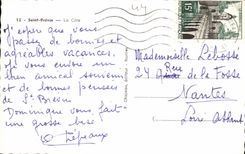 12 - Saint-Brévin - La Côte
J'espère que vous
passez de bonnes et
agréables vacances.
Je vous envoie un
bien amical souvenir
et de bonnes pensées
de St Brévin
Dominique vous fait
une grosse bise.
Mademoiselle
24 Rue de la Fosse
Nantes
Loire Atlant.
15F
44